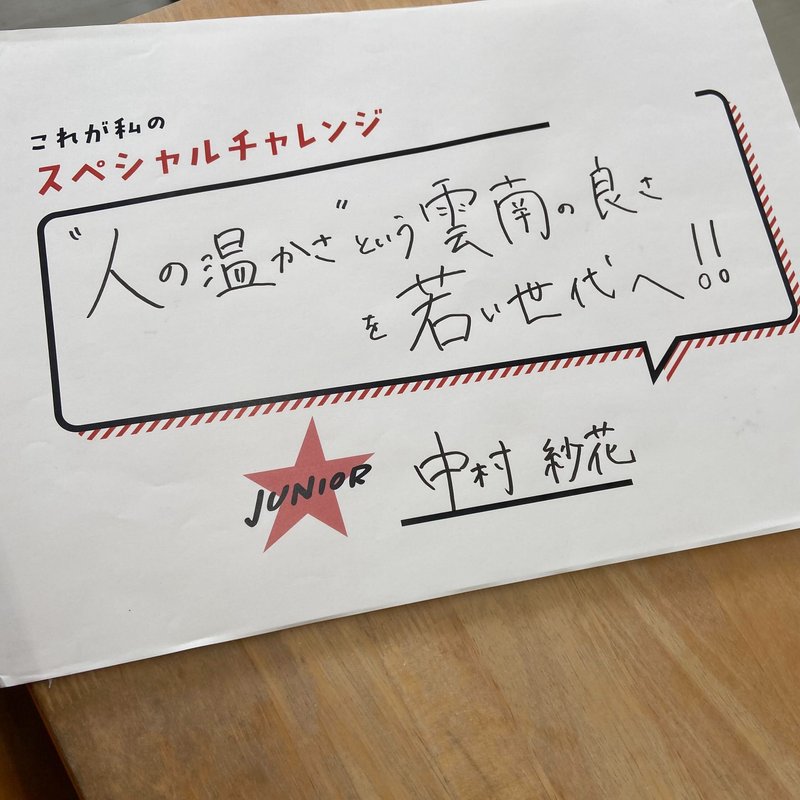 これが私の
スペシャルチャレンジ
"人の温かさ"という雲南の良さ
を若い世代へ!!
JUNIOR
中村 紗花